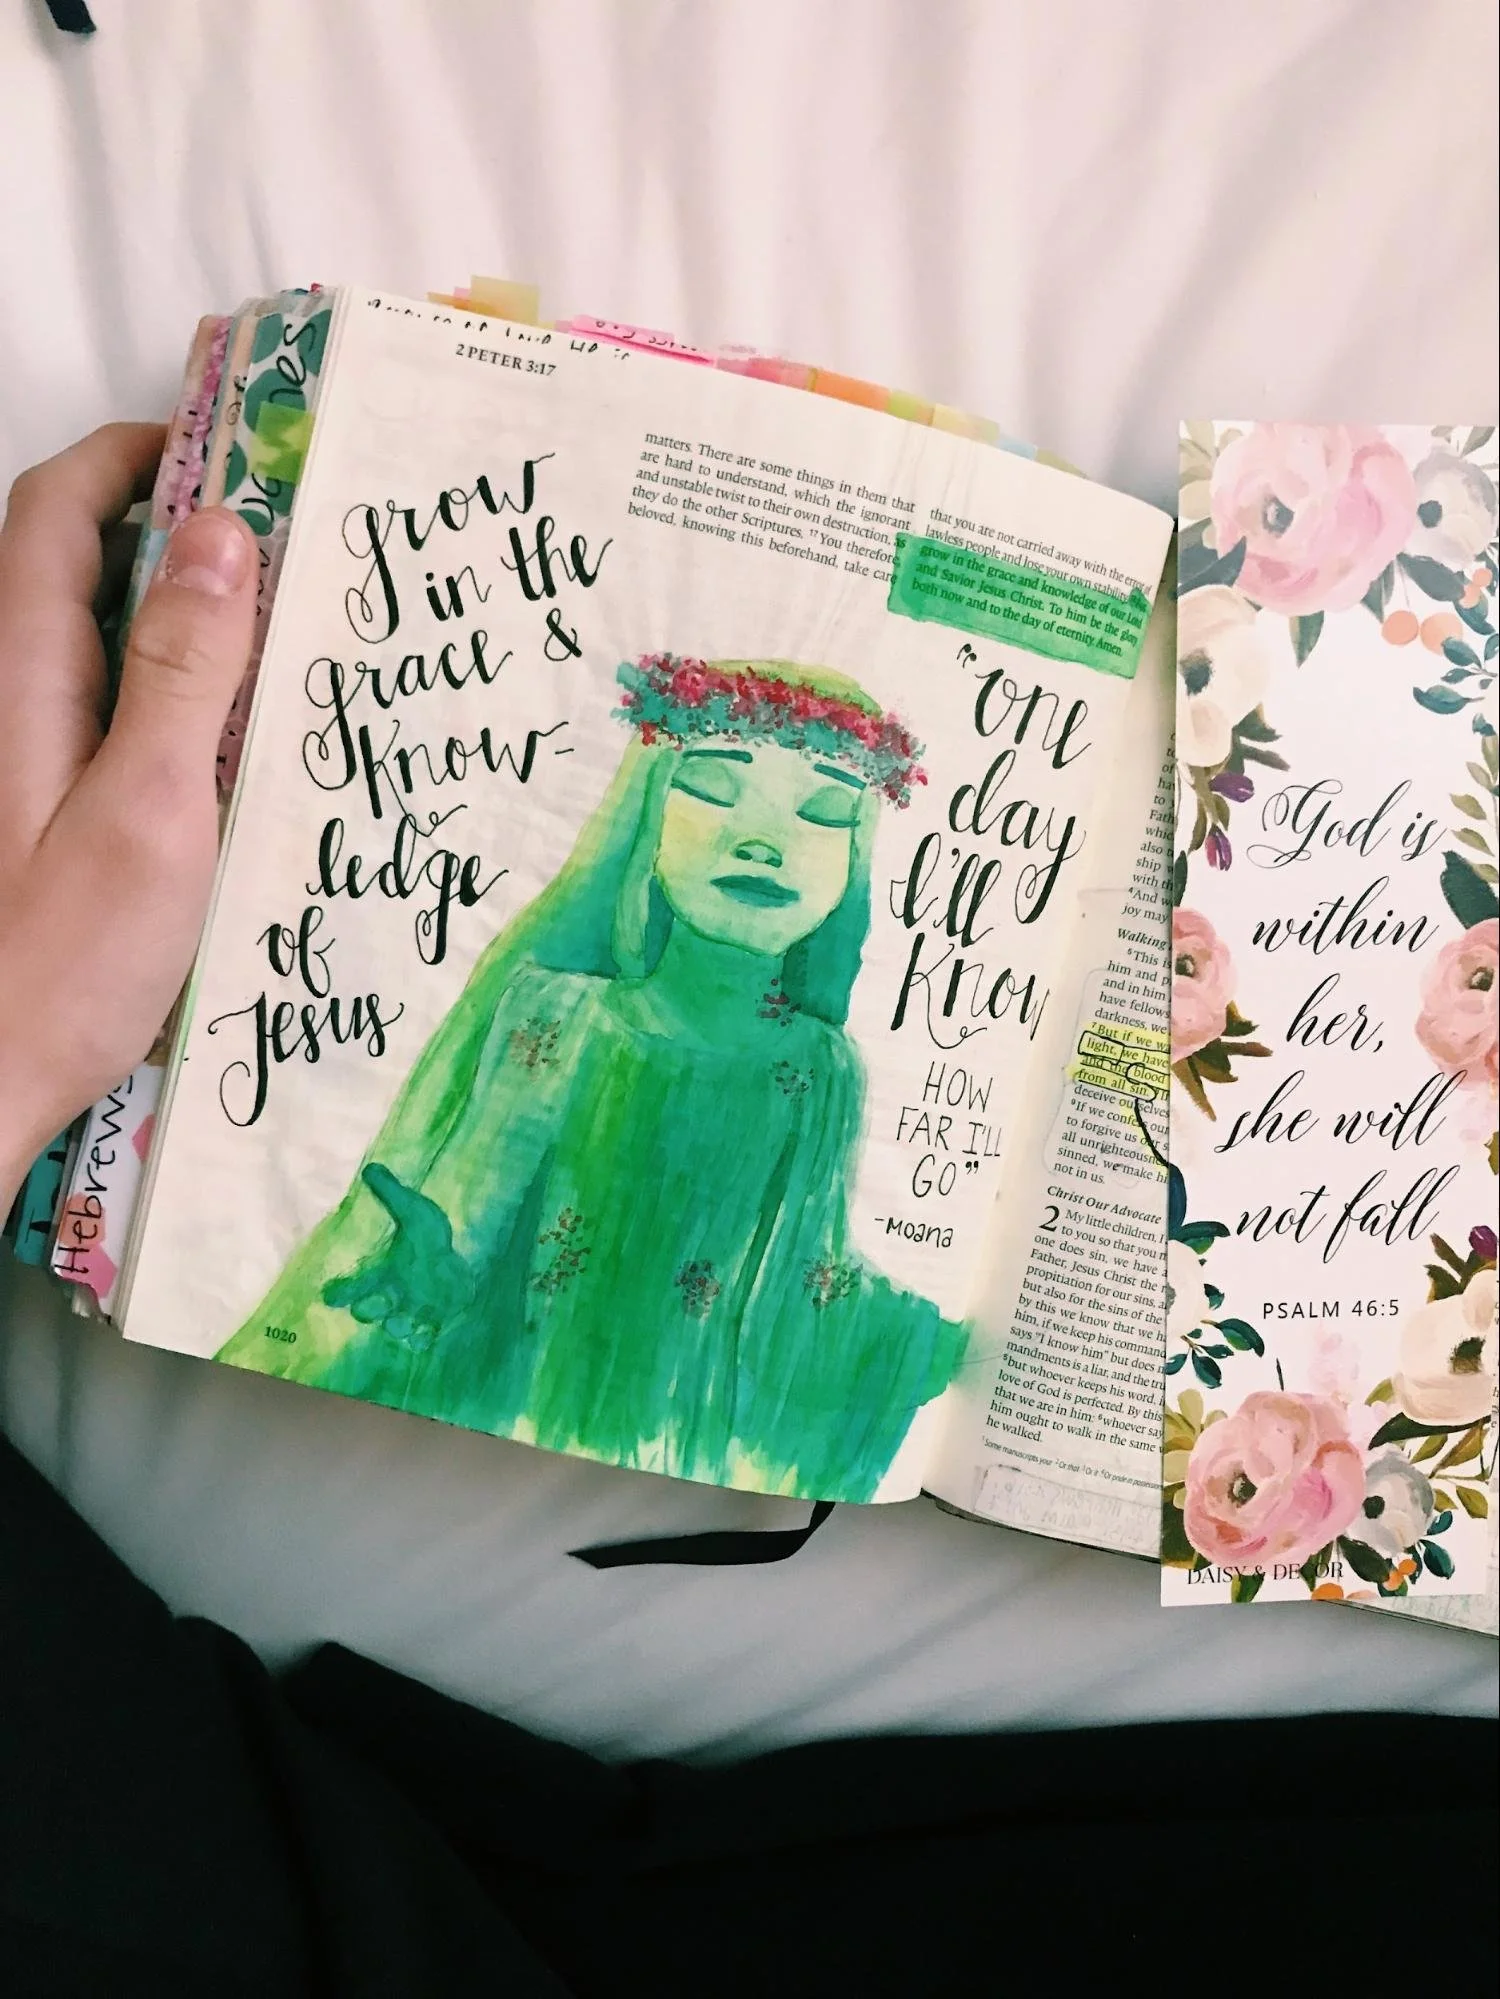 2 PETER 3:17
grow
in the
grace &
know-
ledge
of
Jesus
matters. There are some things in them that
are hard to understand, which the ignorant
and unstable twist to their own destruction, as
they do the other Scriptures. 17 You therefore,
beloved, knowing this beforehand, take care
that you are not carried away with the error of
lawless people and lose your own stability.
grow in the grace and knowledge of our Lord
and Savior Jesus Christ. To him be the glory
both now and to the day of eternity. Amen.
"one
day
I'll
Know
HOW
FAR I'LL
GO"
-Moana
1020
Hebrews
joy may
Walking
5 This is
him and p
and in him
have fellows
darkness, we
7 But if we wa
light, we have
and the blood
from all sin.
deceive ourselves
9 If we confess our
to forgive us our s
all unrighteousne
sinned, we make hi
not in us.
Christ Our Advocate
2 My little children, I
to you so that you m
one does sin, we have a
Father, Jesus Christ the r
propitiation for our sins, a
but also for the sins of the
by this we know that we h
him, if we keep his command
says "I know him" but does n
mandments is a liar, and the tru
5 but whoever keeps his word, i
love of God is perfected. By this
that we are in him: 6 whoever say
him ought to walk in the same w
he walked.
God is
within
her,
she will
not fall
PSALM 46:5
DAISY & DECOR